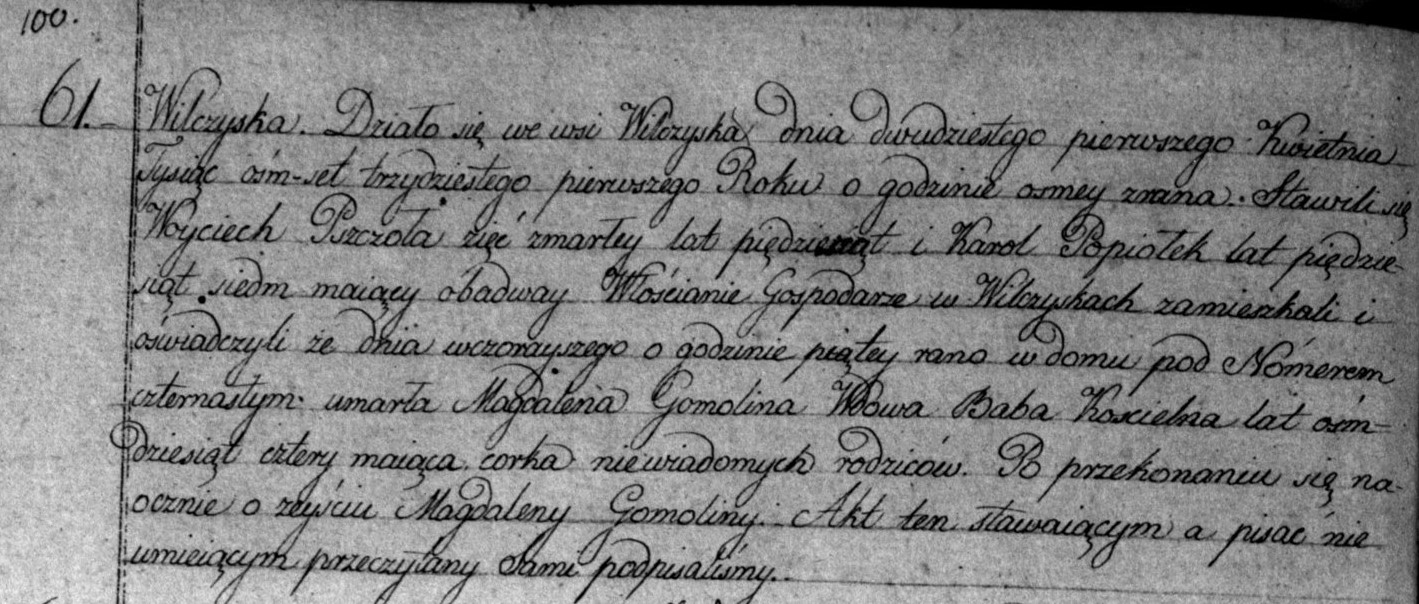 100.
61. Wilczyska. Działo się we wsi Wilczyska dnia dwudziestego pierwszego Kwietnia
Tysiąc ośm-set trzydziestego pierwszego Roku o godzinie osmey zrana. Stawili się
Woyciech Pszczoła zięć zmarłey lat piędziesiąt i Karol Popiołek lat piędzie-
siąt siedm maiący obadway Włościanie Gospodarze w Wilczyskach zamieszkali i
oświadczyli że dnia wczorayszego o godzinie piątey rano w domu pod Nómerem
czternastym umarła Magdalena Gomolina Wdowa Baba Koscielna lat ośm-
dziesiąt cztery maiąca corka niewiadomych rodziców. Po przekonaniu się na-
ocznie o zeyściu Magdaleny Gomoliny. Akt ten stawaiącym a pisać nie
umieiącym przeczytany Sami podpisaliśmy.